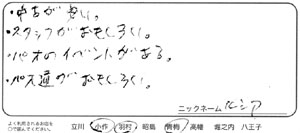 ・中古が安い。
・スタッフがおもしろい。
・パオのイベントがある。
・パス通がおもしろい。
ニックネーム ルシア
よく利用されるお店を
○で囲んでください。
立川 小作 羽村 昭島 青梅 高幡 堀之内 八王子